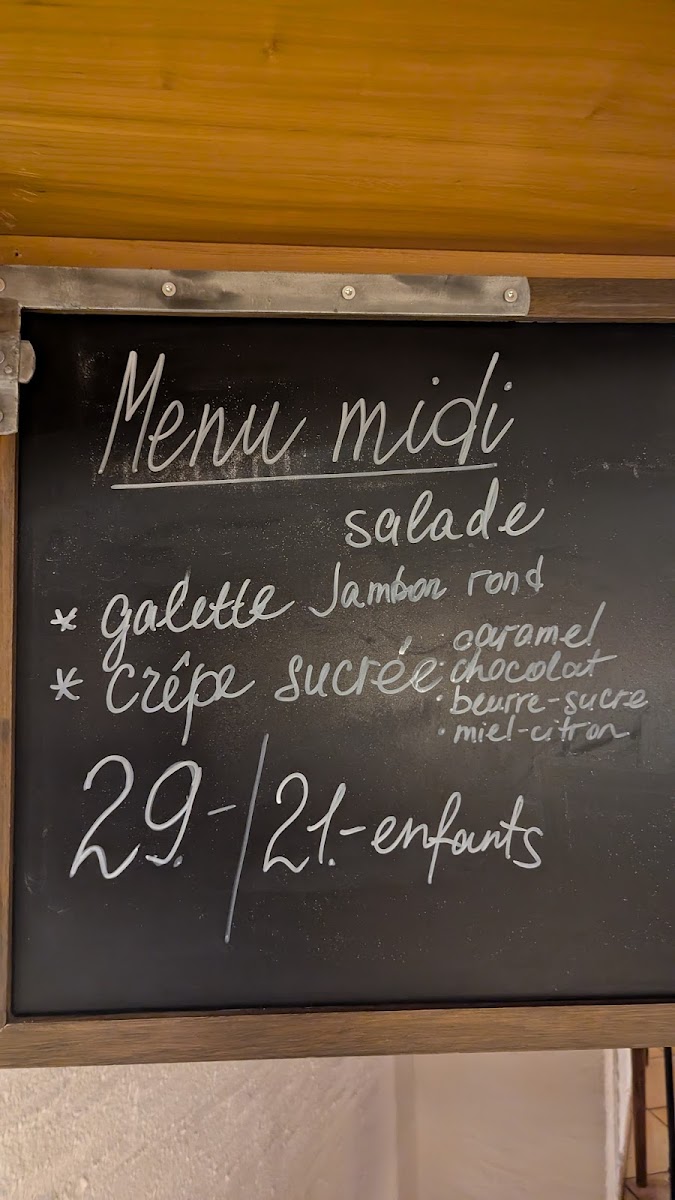 Menu midi
salade
* galette Jambon rond
* crêpe sucrée · caramel
· chocolat
· beurre-sucre
· miel-citron
29.-/21.-enfants